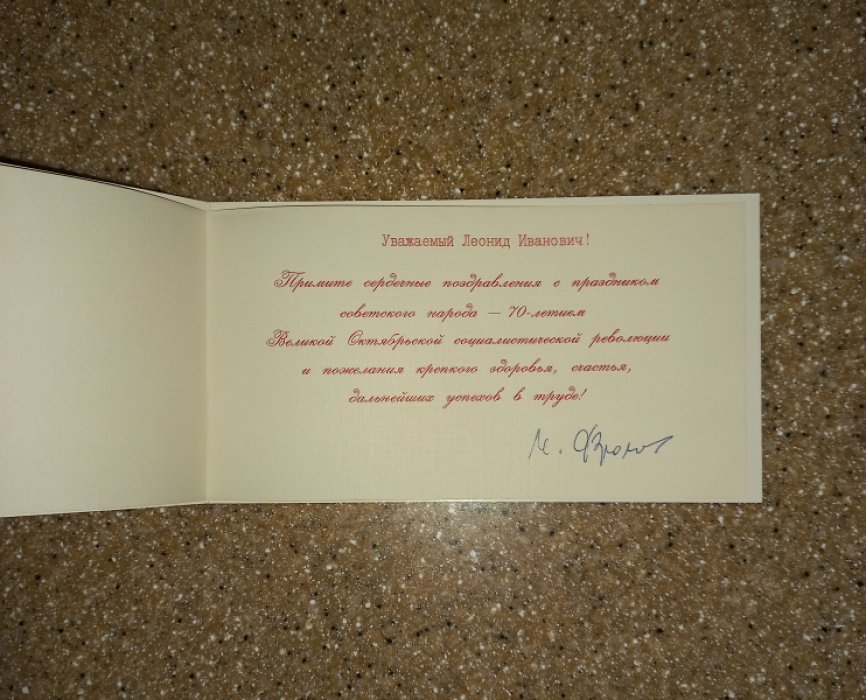 Уважаемый Леонид Иванович!
Примите сердечные поздравления с праздником
советского народа — 70-летием
Великой Октябрьской социалистической революции
и пожелания крепкого здоровья, счастья,
дальнейших успехов в труде!